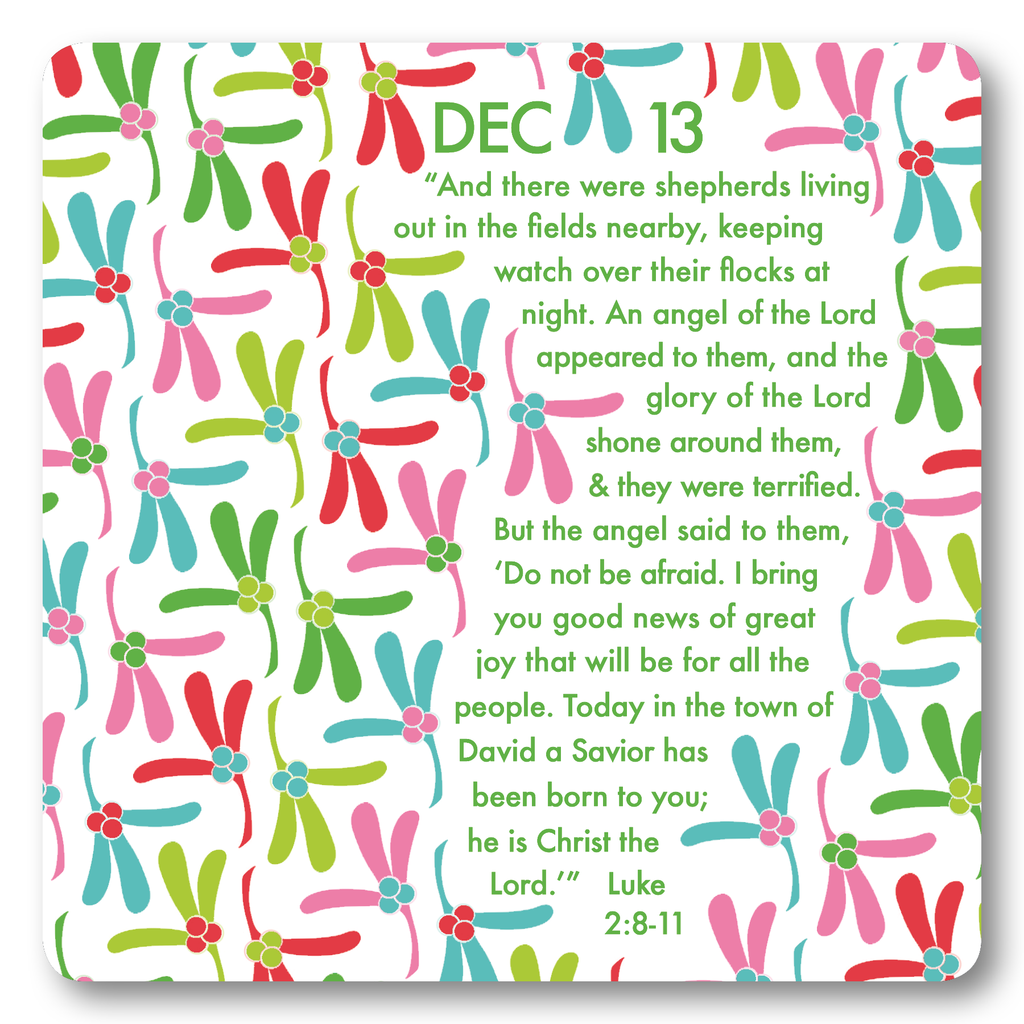 DEC 13
“And there were shepherds living
out in the fields nearby, keeping
watch over their flocks at
night. An angel of the Lord
appeared to them, and the
glory of the Lord
shone around them,
& they were terrified.
But the angel said to them,
‘Do not be afraid. I bring
you good news of great
joy that will be for all the
people. Today in the town of
David a Savior has
been born to you;
he is Christ the
Lord.’” Luke
2:8-11